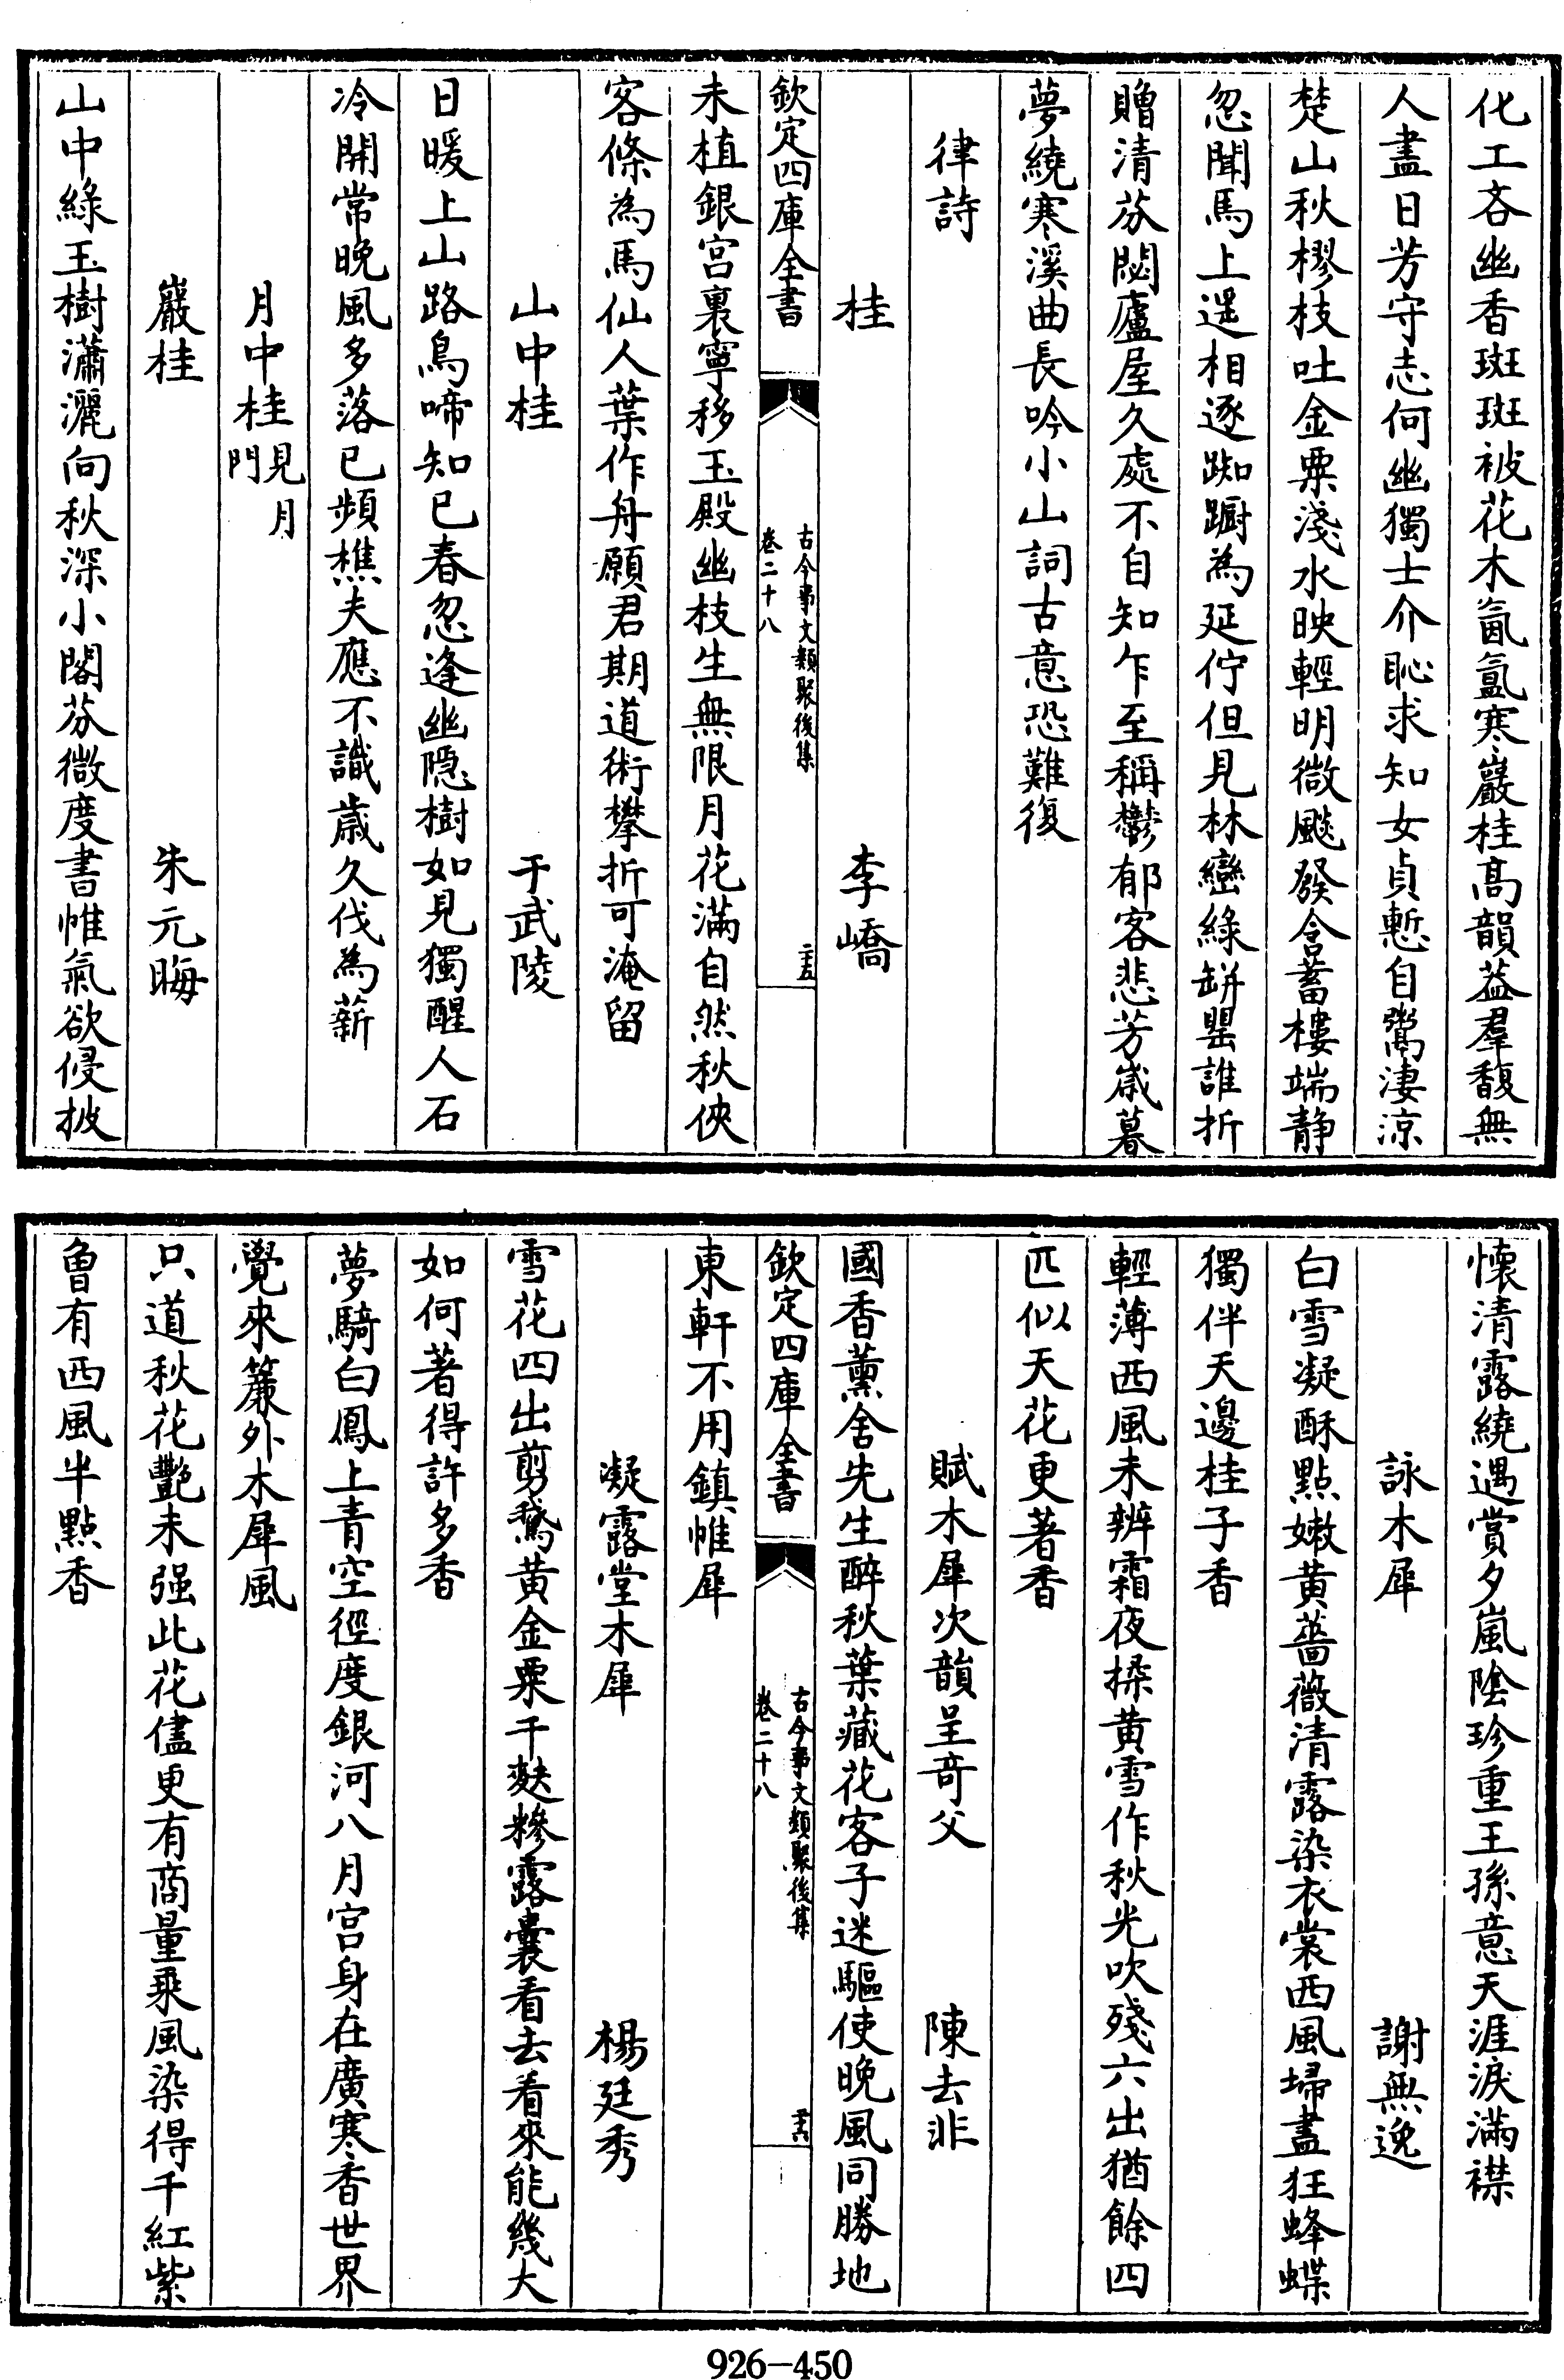 化工吝幽香斑斑被花木氤氲寒巖桂髙韻葢羣馥無
人盡日芳守志何幽獨士介恥求知女貞慙自鬻淒涼
楚山秋樛枝吐金粟淺水映輕明微颷發含蓄樓端靜
忽聞馬上遥相逐踟蹰為延佇但見林巒綠缾罌誰折
贈清芬閟廬屋久處不自知乍至稱鬱郁客悲芳歲暮
夢繞寒溪曲長吟小山詞古意恐難復
律詩
桂　李嶠
欽定四庫全書
古今事文類聚後集
卷二十八
未植銀宫裏寧移玉殿幽枝生無限月花滿自然秋俠
客條為馬仙人葉作舟願君期道術攀折可淹留
山中桂　于武陵
日暖上山路鳥啼知已春忽逢幽隠樹如見獨醒人石
冷開常晚風多落已頻樵夫應不識歲久伐為薪
月中桂見月門
巖桂　朱元晦
山中綠玉樹瀟灑向秋深小閣芬微度書帷氣欲侵披
懐清露繞遇賞夕嵐陰珍重王孫意天涯淚滿襟
詠木犀　謝無逸
白雪凝酥點嫩黄薔薇清露染衣裳西風埽盡狂蜂蝶
獨伴天邊桂子香
輕薄西風未辨霜夜揉黄雪作秋光吹殘六出猶餘四
匹似天花更著香
賦木犀次韻呈竒父　陳去非
國香薰舍先生醉秋葉藏花客子迷驅使晚風同勝地
欽定四庫全書
古今事文類聚後集
卷二十八
東軒不用鎮帷犀
凝露堂木犀　楊廷秀
雪花四出剪鵞黄金粟千麩糝露囊看去看來能幾大
如何著得許多香
夢騎白鳳上青空徑度銀河八月宫身在廣寒香世界
覺來簾外木犀風
只道秋花艷未强此花儘更有商量乘風染得千紅紫
曾有西風半點香
926-450